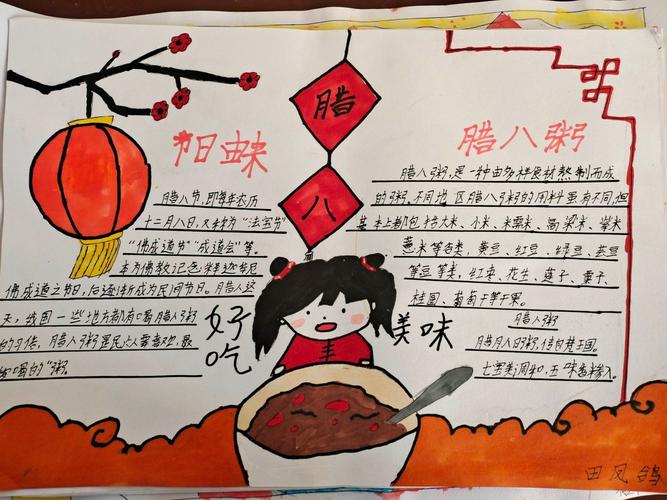 腊
八
节日由来
腊八节,即每年农历
十二月八日,又称为“法宝节”
“佛成道节”“成道会”等。
本为佛教纪念释迦牟尼
佛成道之节日,后逐渐成为民间节日。腊八这
天,我国一些地方都有喝腊八粥
的习俗,腊八粥是民人喜欢,最
喝的“粥
好吃
美味
腊八粥
腊八粥,是一种由多样食材熬制而成
的粥,不同地区腊八粥的用料虽有不同,但
基本上都包括大米、小米、米糯米、高粱米、紫米
薏米等谷类,黄豆、红豆、绿豆、芸豆
等豆类,红枣、花生、莲子、栗子、
桂圆、葡萄干等干果。
腊八粥
腊月八日粥,传自梵王国。
七宝美调和,五味香糁入。
田凤鸽